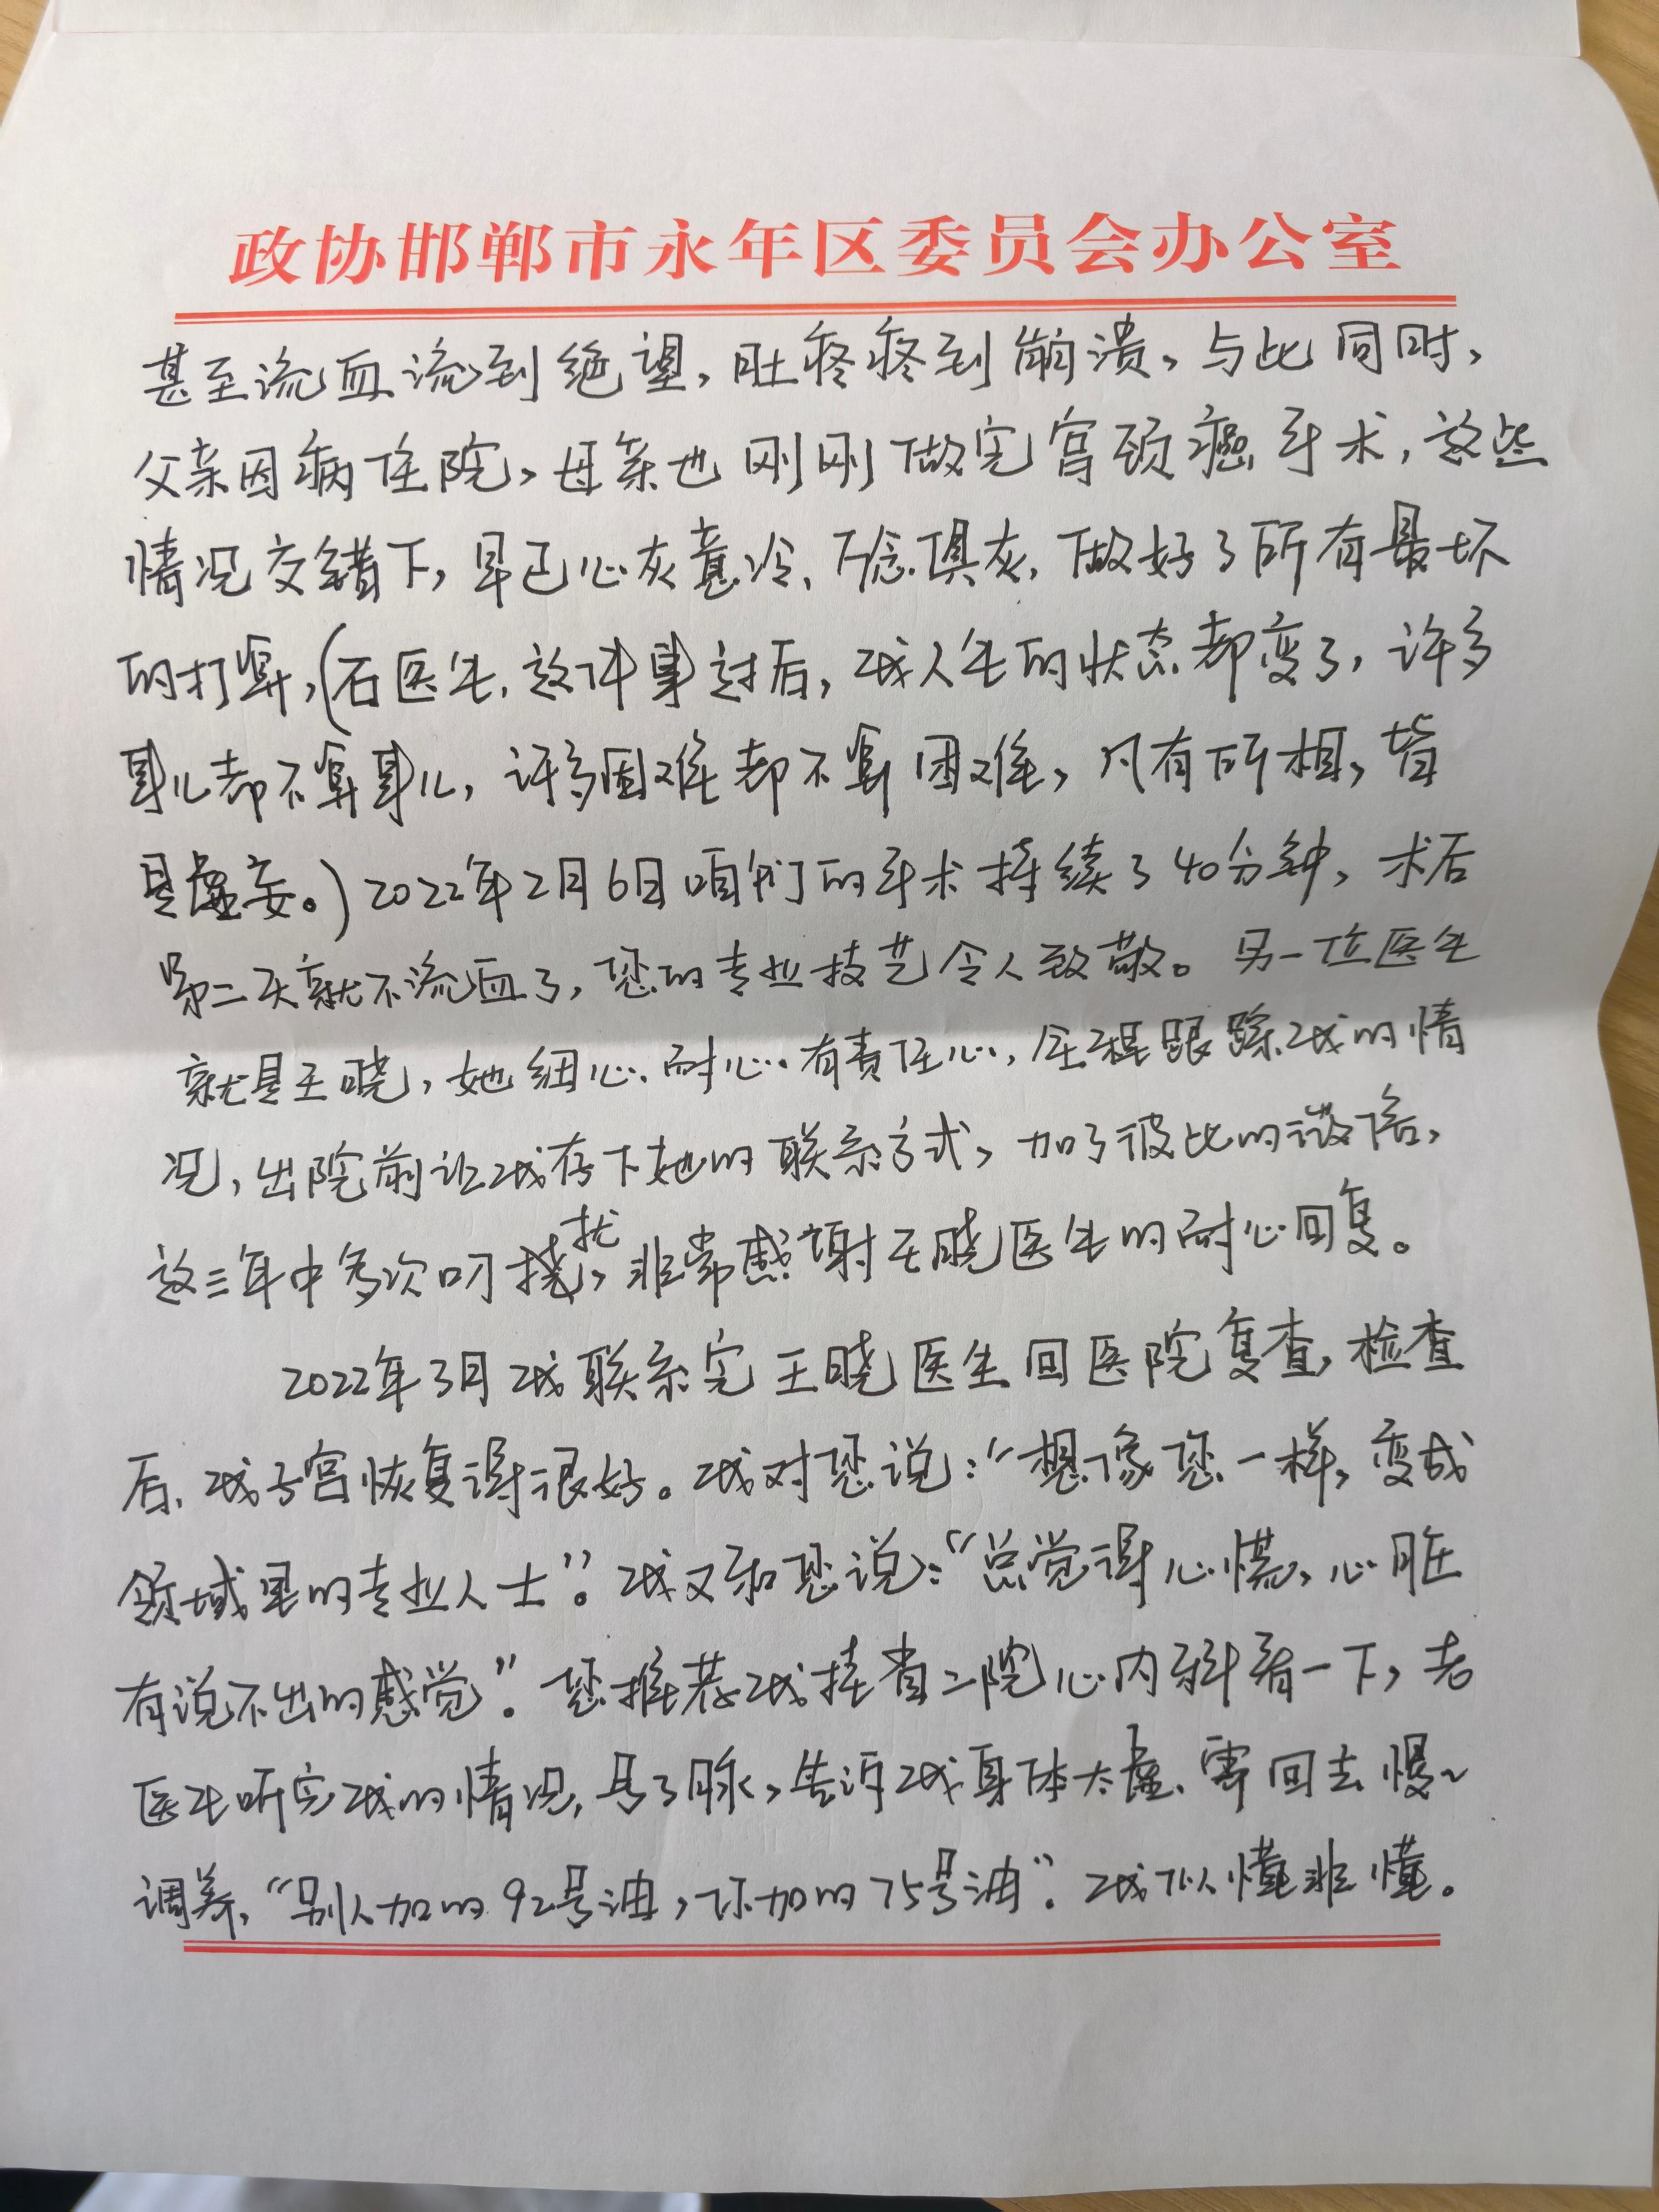 政协邯郸市永年区委员会办公室
甚至流血流到绝望,肚疼疼到崩溃,与此同时,
父亲因病住院,母亲也刚刚做完宫颈癌手术,这些
情况交错下,早已心灰意冷、万念俱灰,做好了所有最坏
的打算,(石医生,这件事过后,我人生的状态都变了,许多
事儿都不算事儿,许多困难都不算困难,凡有所相,皆
是虚妄。)2022年2月6日咱们的手术持续了40分钟,术后
第二天就不流血了,您的专业技艺令人致敬。另一位医生
就是王晓,她细心、耐心、有责任心,全程跟踪我的情
况,出院前让我存下她的联系方式,加了彼此的微信,
这三年中多次叨扰,非常感谢王晓医生的耐心回复。
2022年3月我联系完王晓医生回医院复查,检查
后,我子宫恢复得很好。我对您说:“想像您一样,变成
领域里的专业人士”。我又和您说:“总觉得心慌,心脏
有说不出的感觉”。您推荐我挂省二院心内科看一下,老
医生听完我的情况,号了脉,告诉我身体太虚、需回去慢~
调养,“别人加的92号油,你加的75号油”。我似懂非懂。